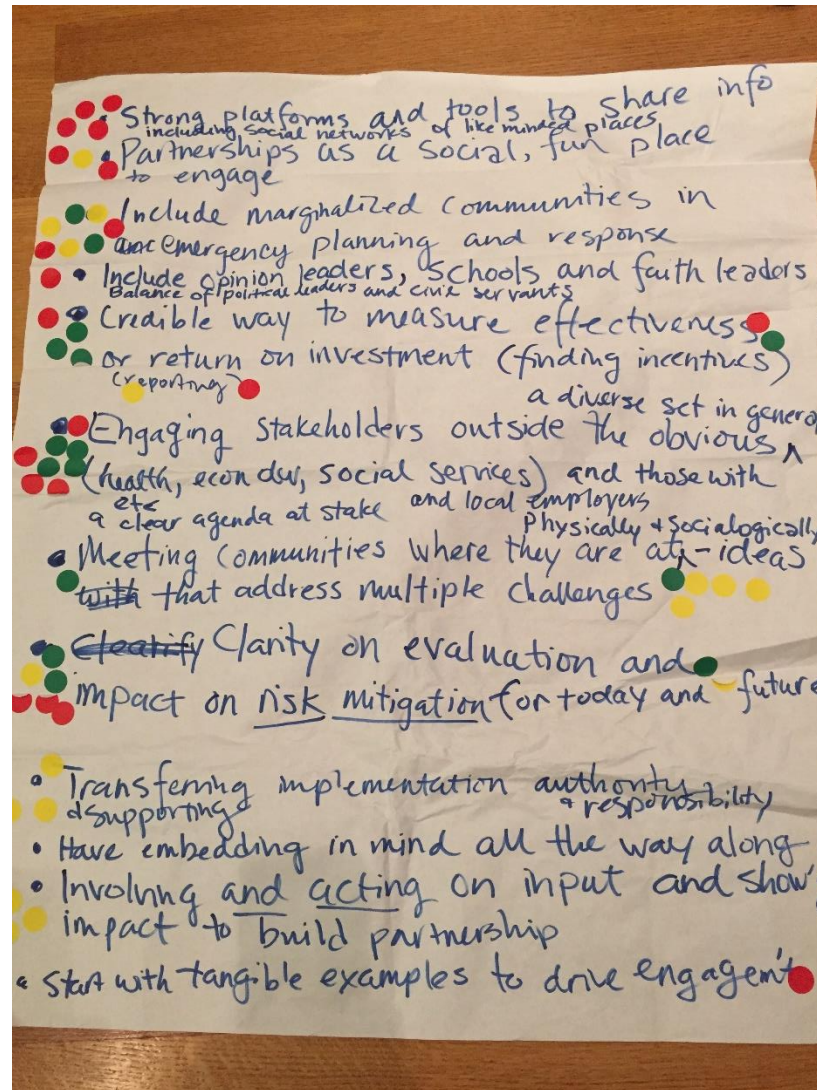 • Strong platforms and tools to share info
including social networks of like minded places
• Partnerships as a social, fun place
to engage
Include marginalized communities in
emergency planning and response
• Include opinion leaders, schools and faith leaders
Balance of political leaders and civil servants
• Credible way to measure effectiveness
or return on investment (finding incentives)
(reporting)
a diverse set in general
• Engaging stakeholders outside the obvious ^
(health, econ dev, social services) and those with
etc
a clear agenda at stake and local employers
Physically + Socialogically
• Meeting communities where they are at ^ - ideas
with that address multiple challenges
• Clearify Clarity on evaluation and
impact on risk mitigation for today and future
• Transferring implementation authority
& supporting + responsibility
• Have embedding in mind all the way along
• Involving and acting on input and show
impact to build partnership
• Start with tangible examples to drive engagem't